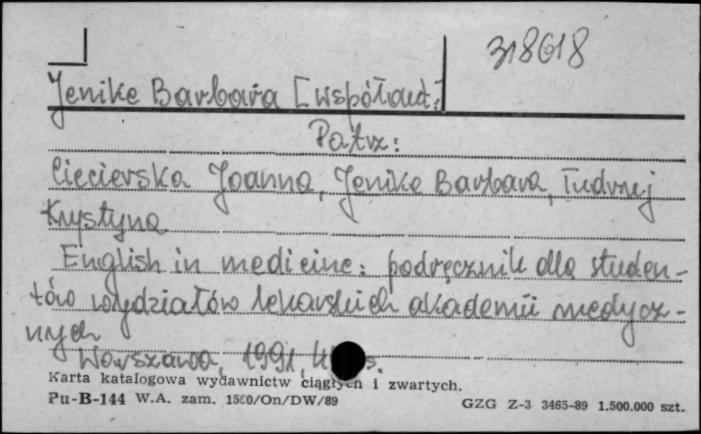 318618
Jenike Barbara [współaut.]
Patrz:
Ciecierska Joanna, Jenike Barbara, Tudrzej
Krystyna
English in medicine: podręcznik dla studen-
tów wydziałów lekarskich akademii medycz-
nych
Warszawa, 1991, s.
Karta katalogowa wydawnictw ciągłych i zwartych.
Pu-B-144 W.A. zam. 1560/On/DW/89 GZG Z-3 3465-89 1.500.000 szt.